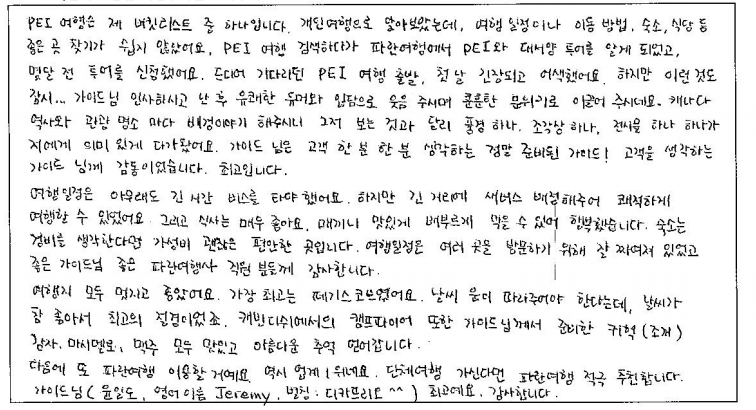 PEI 여행은 제 버킷리스트 중 하나입니다. 개인여행으로 알아보았는데, 여행 일정이나 이동 방법, 숙소, 식당 등
좋은 곳 찾기가 쉽지 않았어요. PEI 여행 검색하다가 파란여행에서 PEI와 대서양 투어를 알게 되었고,
몇달 전 투어를 신청했어요. 드디어 기다리던 PEI 여행 출발, 첫 날 긴장되고 어색했어요. 하지만 이런것도
잠시... 가이드님 인사하시고 난 후 유쾌한 유머와 입담으로 웃음 주시며 훈훈한 분위기로 이끌어 주시네요. 캐나다
역사와 관광 명소 마다 배경이야기 해주시니 그저 보는 것과 달리 풍경 하나, 조각상 하나, 전시물 하나 하나가
저에게 의미 있게 다가왔어요. 가이드 님은 고객 한 분 한 분 생각하는 정말 준비된 가이드! 고객을 생각하는
가이드 님께 감동이었습니다. 최고입니다.
여행일정은 아무래도 긴 시간 버스를 타야 했어요. 하지만 긴 거리에 새버스 배정해주어 쾌적하게
여행할 수 있었어요. 그리고 식사는 매우 좋아요. 매끼니 맛있게 배부르게 먹을 수 있어 행복했습니다. 숙소는
경비를 생각한다면 가성비 괜찮은 편안한 곳입니다. 여행일정은 여러 곳을 방문하기 위해 잘 짜여져 있었고
좋은 가이드님 좋은 파란여행사 직원 분들께 감사합니다.
여행지 모두 멋지고 좋았어요. 가장 최고는 페기스코브였어요. 날씨 운이 따라주어야 한다는데, 날씨가
참 좋아서 최고의 절경이었죠. 캐번디쉬에서의 캠프파이어 또한 가이드님께서 준비한 귀한(조개)
감자, 마시멜로, 맥주 모두 맛있고 아름다운 추억 얻어갑니다.
다음에 또 파란여행 이용할 거예요. 역시 업계 1위네요. 단체여행 가신다면 파란여행 적극 추천합니다.
가이드님 (윤일도, 영어이름 Jeremy, 별칭: 디카프리오 ^^) 최고예요. 감사합니다.